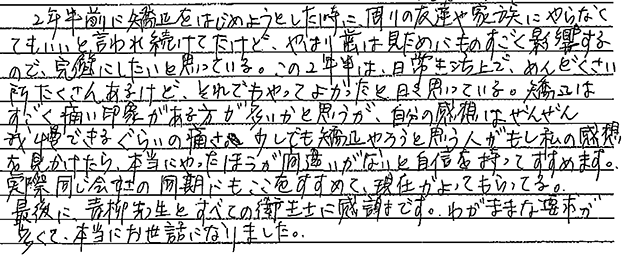 2年半前に矯正をはじめようとした時に、周りの友達や家族にやらなく
てもいいと言われ続けてたけど、やはり歯は見ためにものすごく影響する
ので、完璧にしたいと思っている。この2年半は、日常生活上で、めんどくさい
所たくさんあるけど、それでもやってよかったと日々思っている。矯正は
すごく痛い印象がある方が多いかと思うが、自分の感想はぜんぜん
我慢できるぐらいの痛さ。少しでも矯正やろうと思う人がもし私の感想
を見かけたら、本当にやったほうが間違いがないと自信を持ってすすめます。
実際同じ会社の同期にもここをすすめて、現在がよってもらってる。
最後に、青柳先生とすべての衛生士に感謝です。わがままな要求が
多くて、本当にお世話になりました。